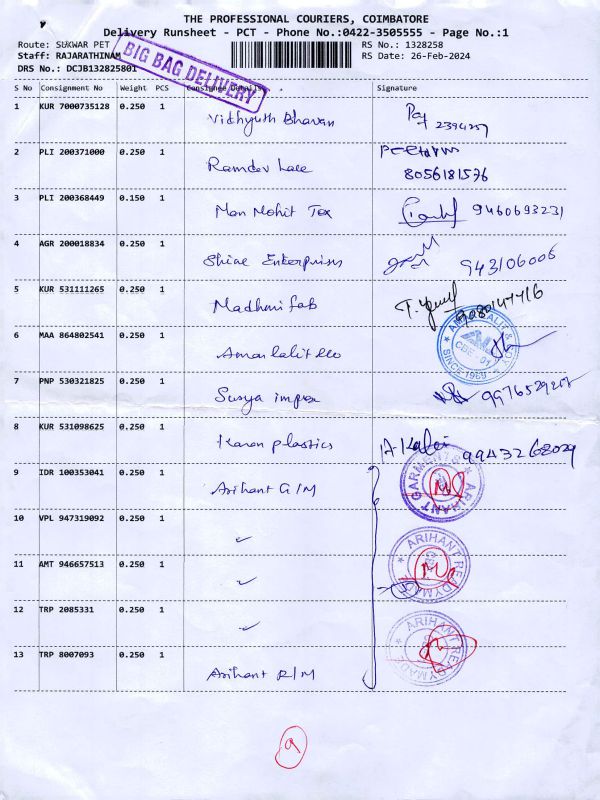 THE PROFESSIONAL COURIERS, COIMBATORE
Delivery Runsheet - PCT - Phone No.:0422-3505555 - Page No.:1
Route: SUKWAR PET RS No.: 1328258
Staff: RAJARATHINAM RS Date: 26-Feb-2024
DRS No.: DCJB132825801
BIG BAG DELIVERY
S No Consignment No Weight PCS Consignee Details Signature
1 KUR 7000735128 0.250 1 Vidhyuth Bhavan 2394257
2 PLI 200371000 0.250 1 Ramdev Lace 8056181576
3 PLI 200368449 0.150 1 Man Mohit Tex 9460693231
4 AGR 200018834 0.250 1 Enterprises 943106006
5 KUR 531111265 0.250 1 Madhuri fab
6 MAA 864802541 0.250 1 Amar lalit
SINCE 1989
7 PNP 530321825 0.250 1 Surya impex
8 KUR 531098625 0.250 1 Karan plastics A Kalai 9943268029
9 IDR 100353041 0.250 1 Arihant G/M
ARIHANT GARMENTS
10 VPL 947319092 0.250 1 ✓
ARIHANT READYMADE
11 AMT 946657513 0.250 1 ✓
12 TRP 2085331 0.250 1 ✓
ARIHANT READYMADE
13 TRP 8007093 0.250 1 Arihant R/M
9